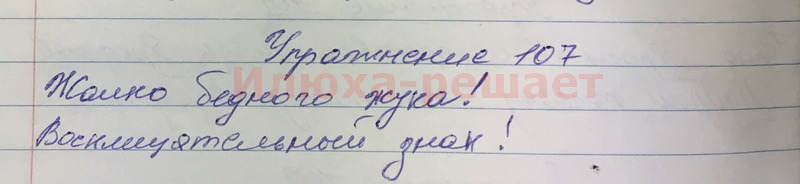 Упражнение 107
Илюха-решает
Жалко бедного жука!
Восклицательный знак!